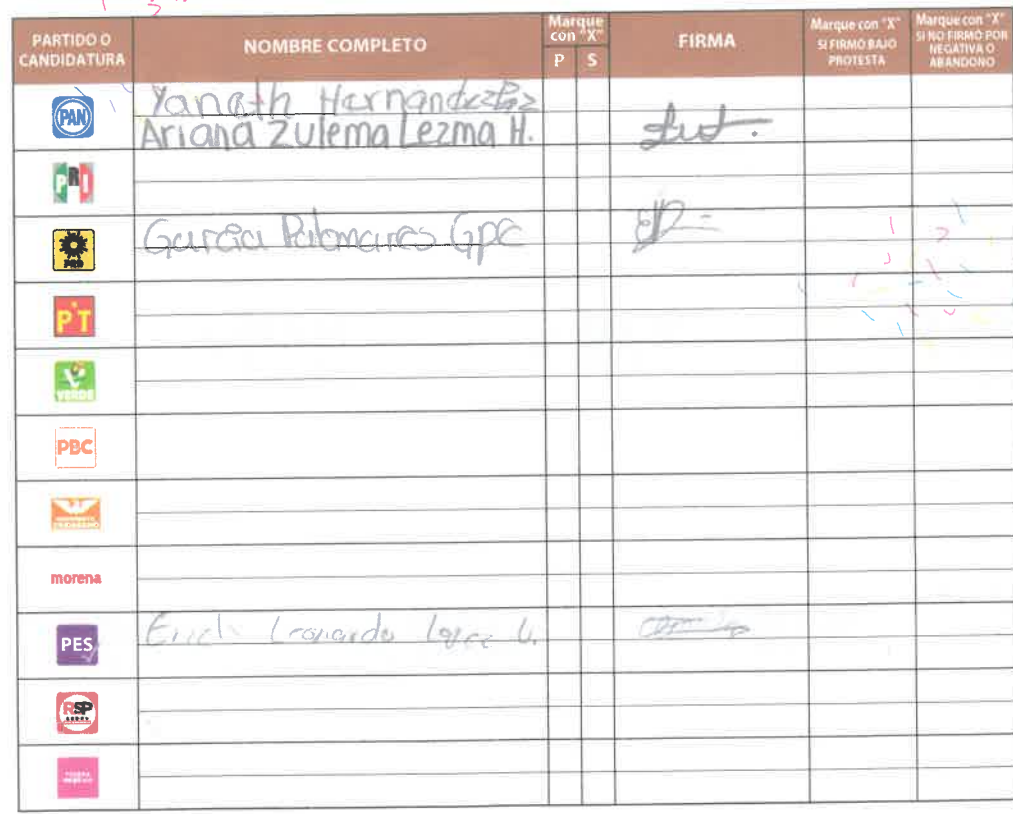 PARTIDO O CANDIDATURA
NOMBRE COMPLETO
Marque con "X"
P S
FIRMA
Marque con "X" SI FIRMÓ BAJO PROTESTA
Marque con "X" SI NO FIRMÓ POR NEGATIVA O ABANDONO
PAN
Yaneth Hernandez
Ariana Zulema Lezma H.
PRI
PRD
García Palomares Gpe
PT
VERDE
PBC
morena
PES
Erick Leonardo
RSP